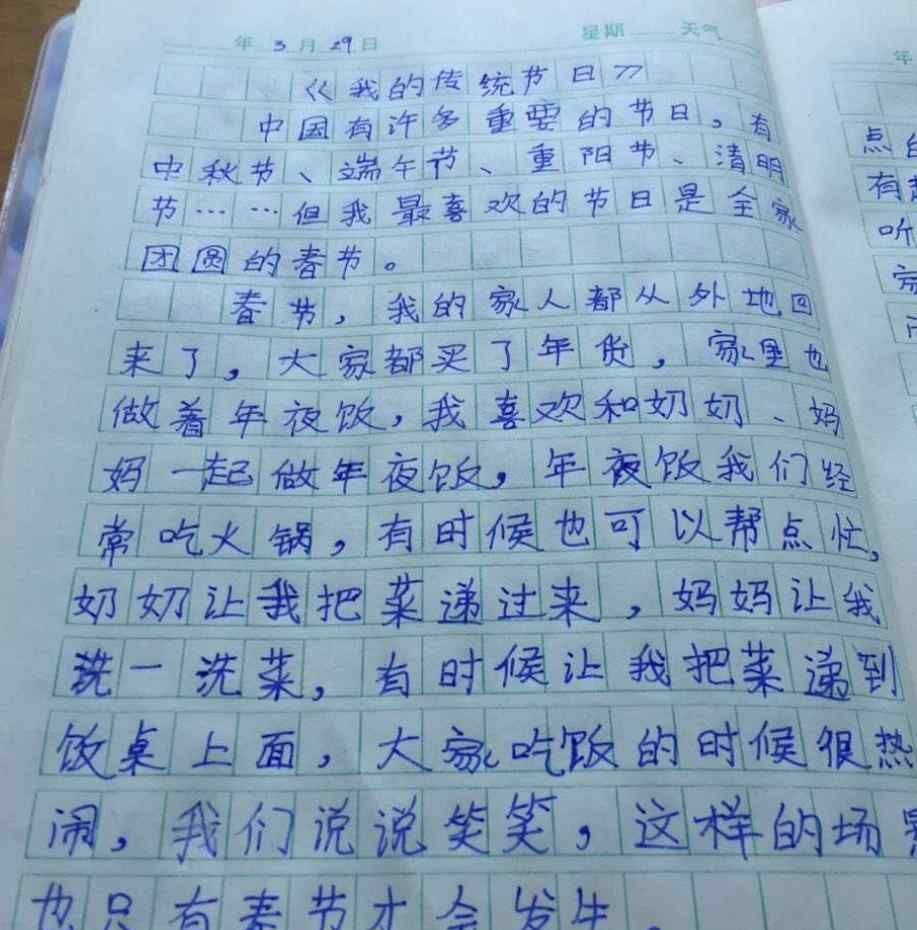 年 3 月 29 日 星期 天气
《我的传统节日》
中国有许多重要的节日，有
中秋节、端午节、重阳节、清明
节……但我最喜欢的节日是全家
团圆的春节。
春节，我的家人都从外地回
来了，大家都买了年货，家里也
做着年夜饭，我喜欢和奶奶、妈
妈一起做年夜饭，年夜饭我们经
常吃火锅，有时候也可以帮点忙，
奶奶让我把菜递过来，妈妈让我
洗一洗菜，有时候让我把菜递到
饭桌上面，大家吃饭的时候很热
闹，我们说说笑笑，这样的场景
也只有春节才会发生。
年
点
有
听
家